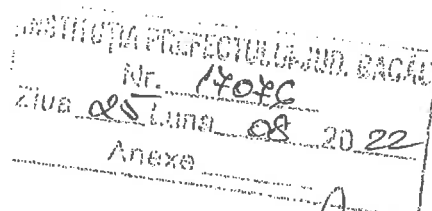 INSTITUȚIA PREFECTULUI JUD. BACĂU
Nr. 17076
Ziua 25 Luna 08 20 22
Anexe
A